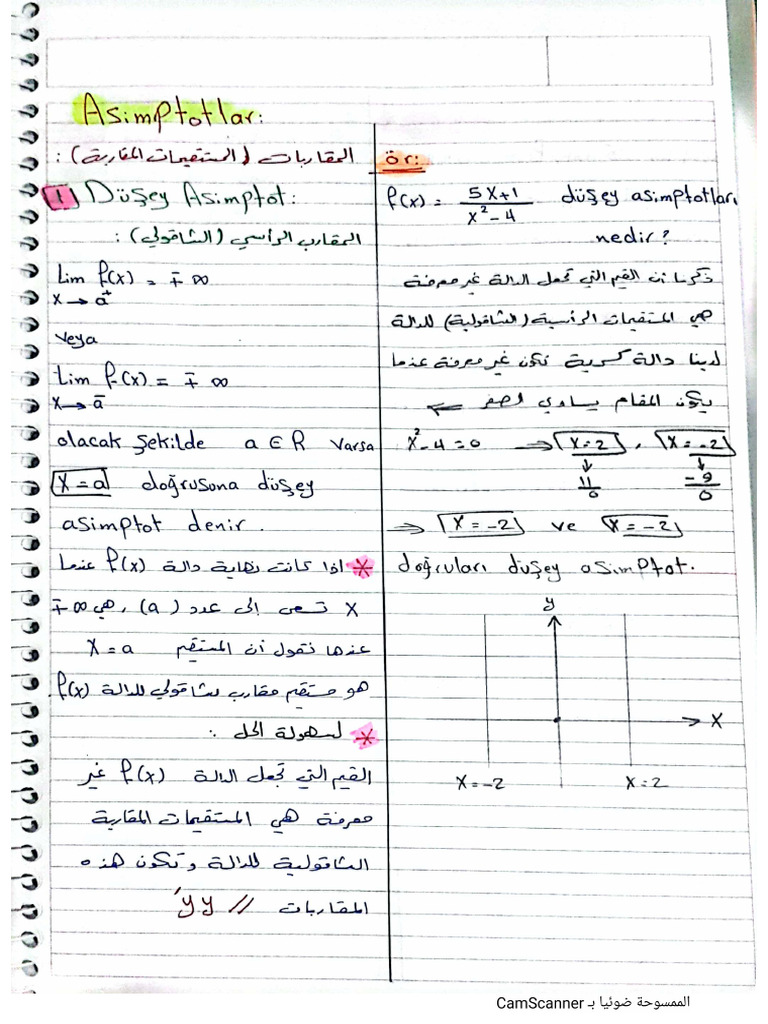 Asimptotlar:
المقاربات (المستقيمات المقاربة):
1) Düşey Asimptot:
المقارب الرأسي (الشاقولي):
Lim f(x) = ∓ ∞
x → a⁺
veya
Lim f(x) = ∓ ∞
x → a⁻
olacak şekilde a ∈ R varsa
x = a doğrusuna düşey
asimptot denir.
* اذا كانت نهاية دالة f(x) عندما
x تسعى إلى عدد (a)، هي ∓∞
عندها نقول أن المستقيم x = a
هو مستقيم مقارب شاقولي للدالة f(x)
* لسهولة الحل:
القيم التي تجعل الدالة f(x) غير
معرفة هي المستقيمات المقاربة
الشاقولية للدالة وتكون هذه
المقاربات // yy'
ör:
f(x) = (5x+1)/(x²-4) düşey asimptotları
nedir?
ذكرنا أن القيم التي تجعل الدالة غير معرفة
هي المستقيمات الرأسية (الشاقولية) للدالة
لدينا دالة كسرية تكون غير معرفة عندما
يكون المقام يساوي الصفر ←
x²-4=0 → x=2 , x=-2
↓ ↓
11/0 -9/0
⇒ x=-2 ve x=-2
doğruları düşey asimptot.
y
x
x=-2 x=2
الممسوحة ضوئيا بـ CamScanner